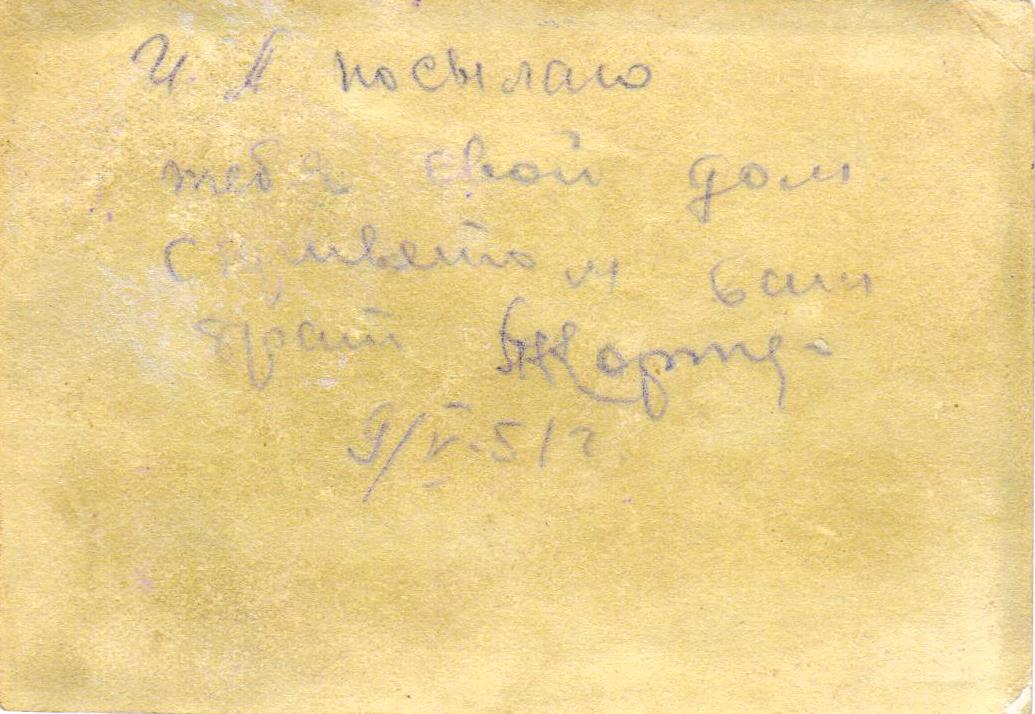 И Я посылаю
тебя свой дом.
с приветом ваш
брат
9/V-51г.